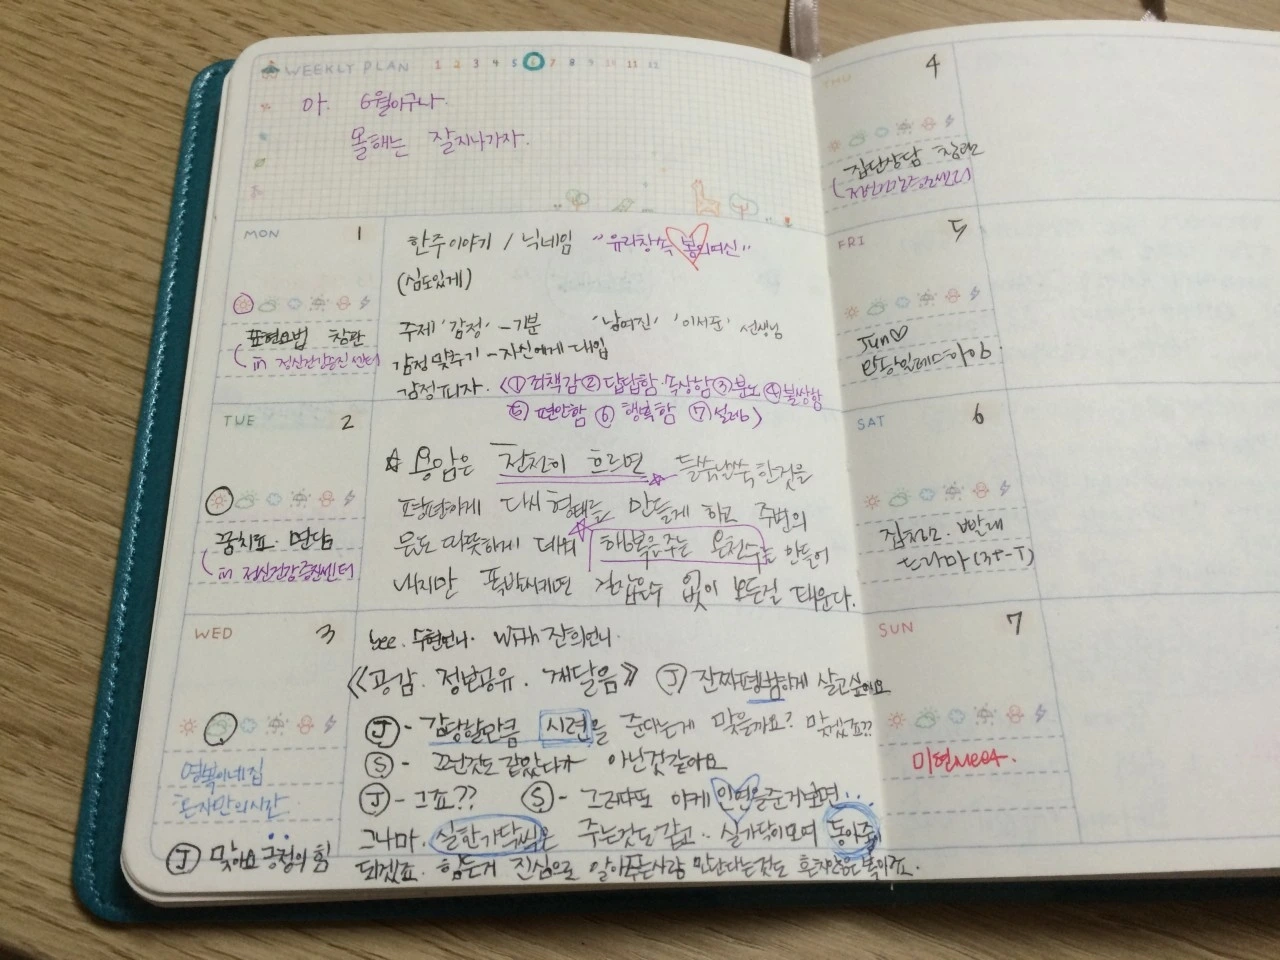 WEEKLY PLAN 1 2 3 4 5 6 7 8 9 10 11 12
아. 6월이구나.
올해는 잘지나가자.
MON 1
표현요법 참관
in 정신건강증진센터
한주이야기 / 닉네임 "유리창속 봄의여신"
(심도있게)
주제 '감정' - 기분 '남여진' '이서포' 선생님
감정맞추기 - 자신에게 대입
감정피자. < ① 죄책감 ② 답답함·속상함 ③ 분노 ④ 불쌍함
⑤ 편안함 ⑥ 행복함 ⑦ 설레임 >
TUE 2
꿈치료. 면담
in 정신건강증진센터
☆ 용암은 천천히 흐르면 들쑥날쑥한것을
평평하게 다시 형태를 만들게 하고 주변의
물도 따뜻하게 데워 행복을주는 온천수를 만들어
내지만 폭발시키면 걷잡을수 없이 모든걸 태운다.
WED 3
영복이네집
혼자만의시간
See. 수현언니. With 잔희언니.
《공감. 정보공유. 깨달음》 Ⓙ 진짜평범하게 살고싶어요
Ⓙ - 감당할만큼 시련을 준다는게 맞을까요? 맞겠죠??
Ⓢ - 그런것도 같았다가 아닌것같아요
Ⓙ - 그죠?? Ⓢ - 그러다또 이케 인연을준거보면...
그나마. 실한가닥씩은 주는것도같고.. 실가닥이모여 동아줄이
Ⓙ 맞아요 긍정의 힘
되겠죠. 힘든거 진심으로 알아주는사람 만난다는것도 흔치않은 복이죠.
THU 4
집단상담 참관
정신건강증진센터
FRI 5
Jun♡
SAT 6
집치고. 빨래
드라마
SUN 7
미현Meet.